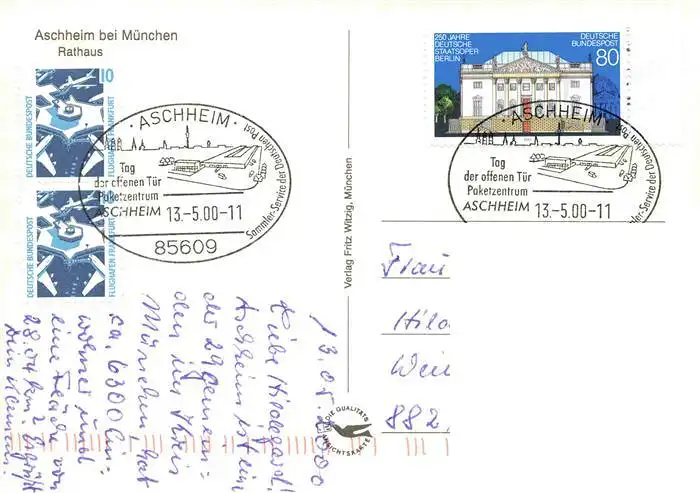 Aschheim bei München
Rathaus
10
DEUTSCHE BUNDESPOST
FLUGHAFEN FRANKFURT
DEUTSCHE BUNDESPOST
FLUGHAFEN FRANKFURT
· ASCHHEIM ·
Tag
der offenen Tür
Paketzentrum
ASCHHEIM 13.-5.00-11
Sammler-Service der Deutschen Post
85609
250 JAHRE
DEUTSCHE
STAATSOPER
BERLIN
DEUTSCHE
BUNDESPOST
80
· ASCHHEIM ·
Tag
der offenen Tür
Paketzentrum
ASCHHEIM 13.-5.00-11
Sammler-Service der Deutschen Post
Verlag Fritz Witzig, München
DIE QUALITÄTS
ANSICHTSKARTE
13.05.2000
Liebe Hildegard!
Aschheim ist ein
der 29 Gemein-
den im Kreis
München, hat
ca. 6300 Ein-
wohner und
eine Fläche von
28,04 km²
Frau
Hild
Wein
882